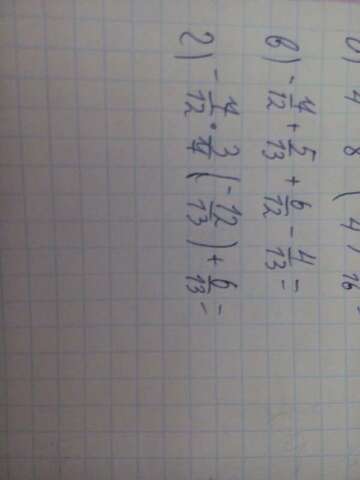 в) -4/12 + 5/13 + 6/12 - 4/13 =
г) -4/12 · 3/4 (-12/13) + 6/13 =